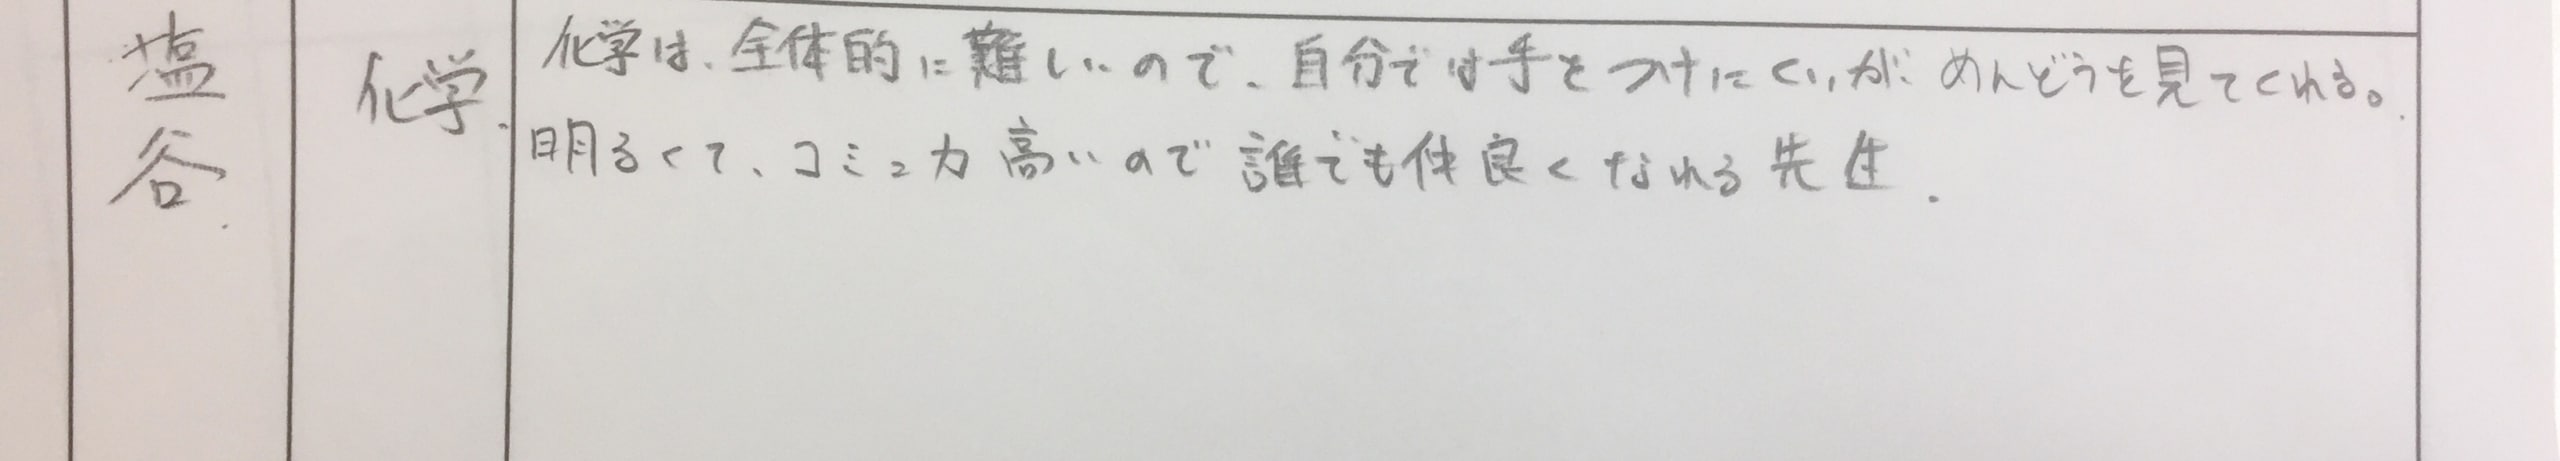 塩谷
化学
化学は、全体的に難しいので、自分では手をつけにくいが めんどうを見てくれる。
明るくて、コミュ力高いので誰でも仲良くなれる先生.